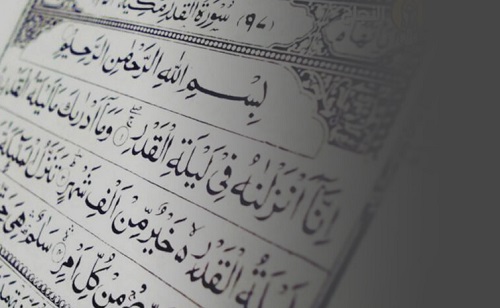 (٩٧) سُوْرَةُ الْقَدْرِ مَكِّيَّةٌ
بِسْمِ اللهِ الرَّحْمٰنِ الرَّحِيْمِ
اِنَّآ اَنْزَلْنٰهُ فِيْ لَيْلَةِ الْقَدْرِ ۝ وَمَآ اَدْرٰىكَ مَا لَيْلَةُ
لَيْلَةُ الْقَدْرِ ۙ خَيْرٌ مِّنْ اَلْفِ شَهْرٍ ۝ تَنَزَّلُ الْمَلٰٓئِكَةُ
مِنْ كُلِّ اَمْرٍ ۝ سَلٰمٌ هِيَ